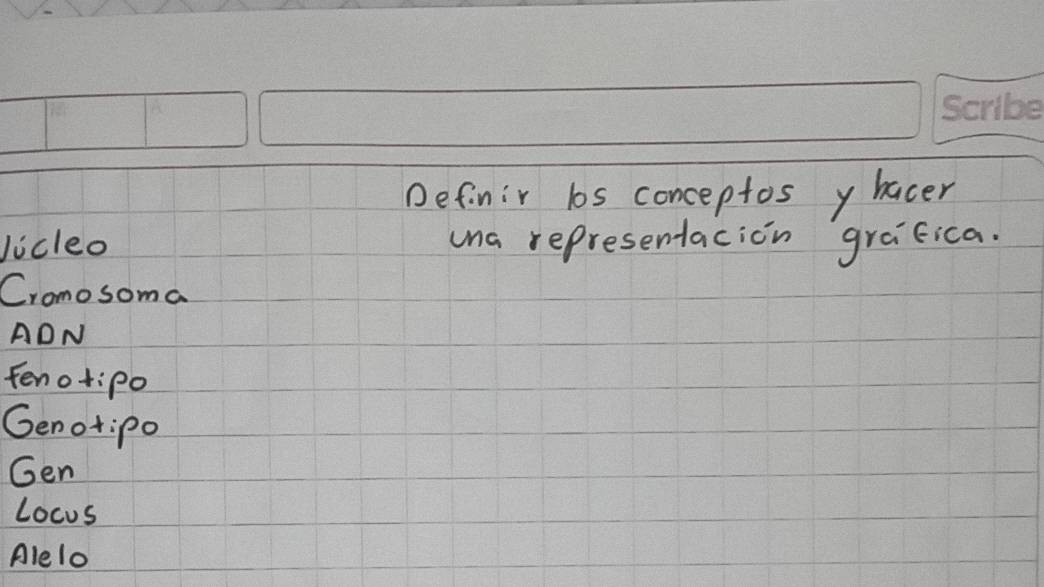 Scribe
Definir los conceptos y hacer
una representación gráfica.
Núcleo
Cromosoma
ADN
Fenotipo
Genotipo
Gen
Locus
Alelo